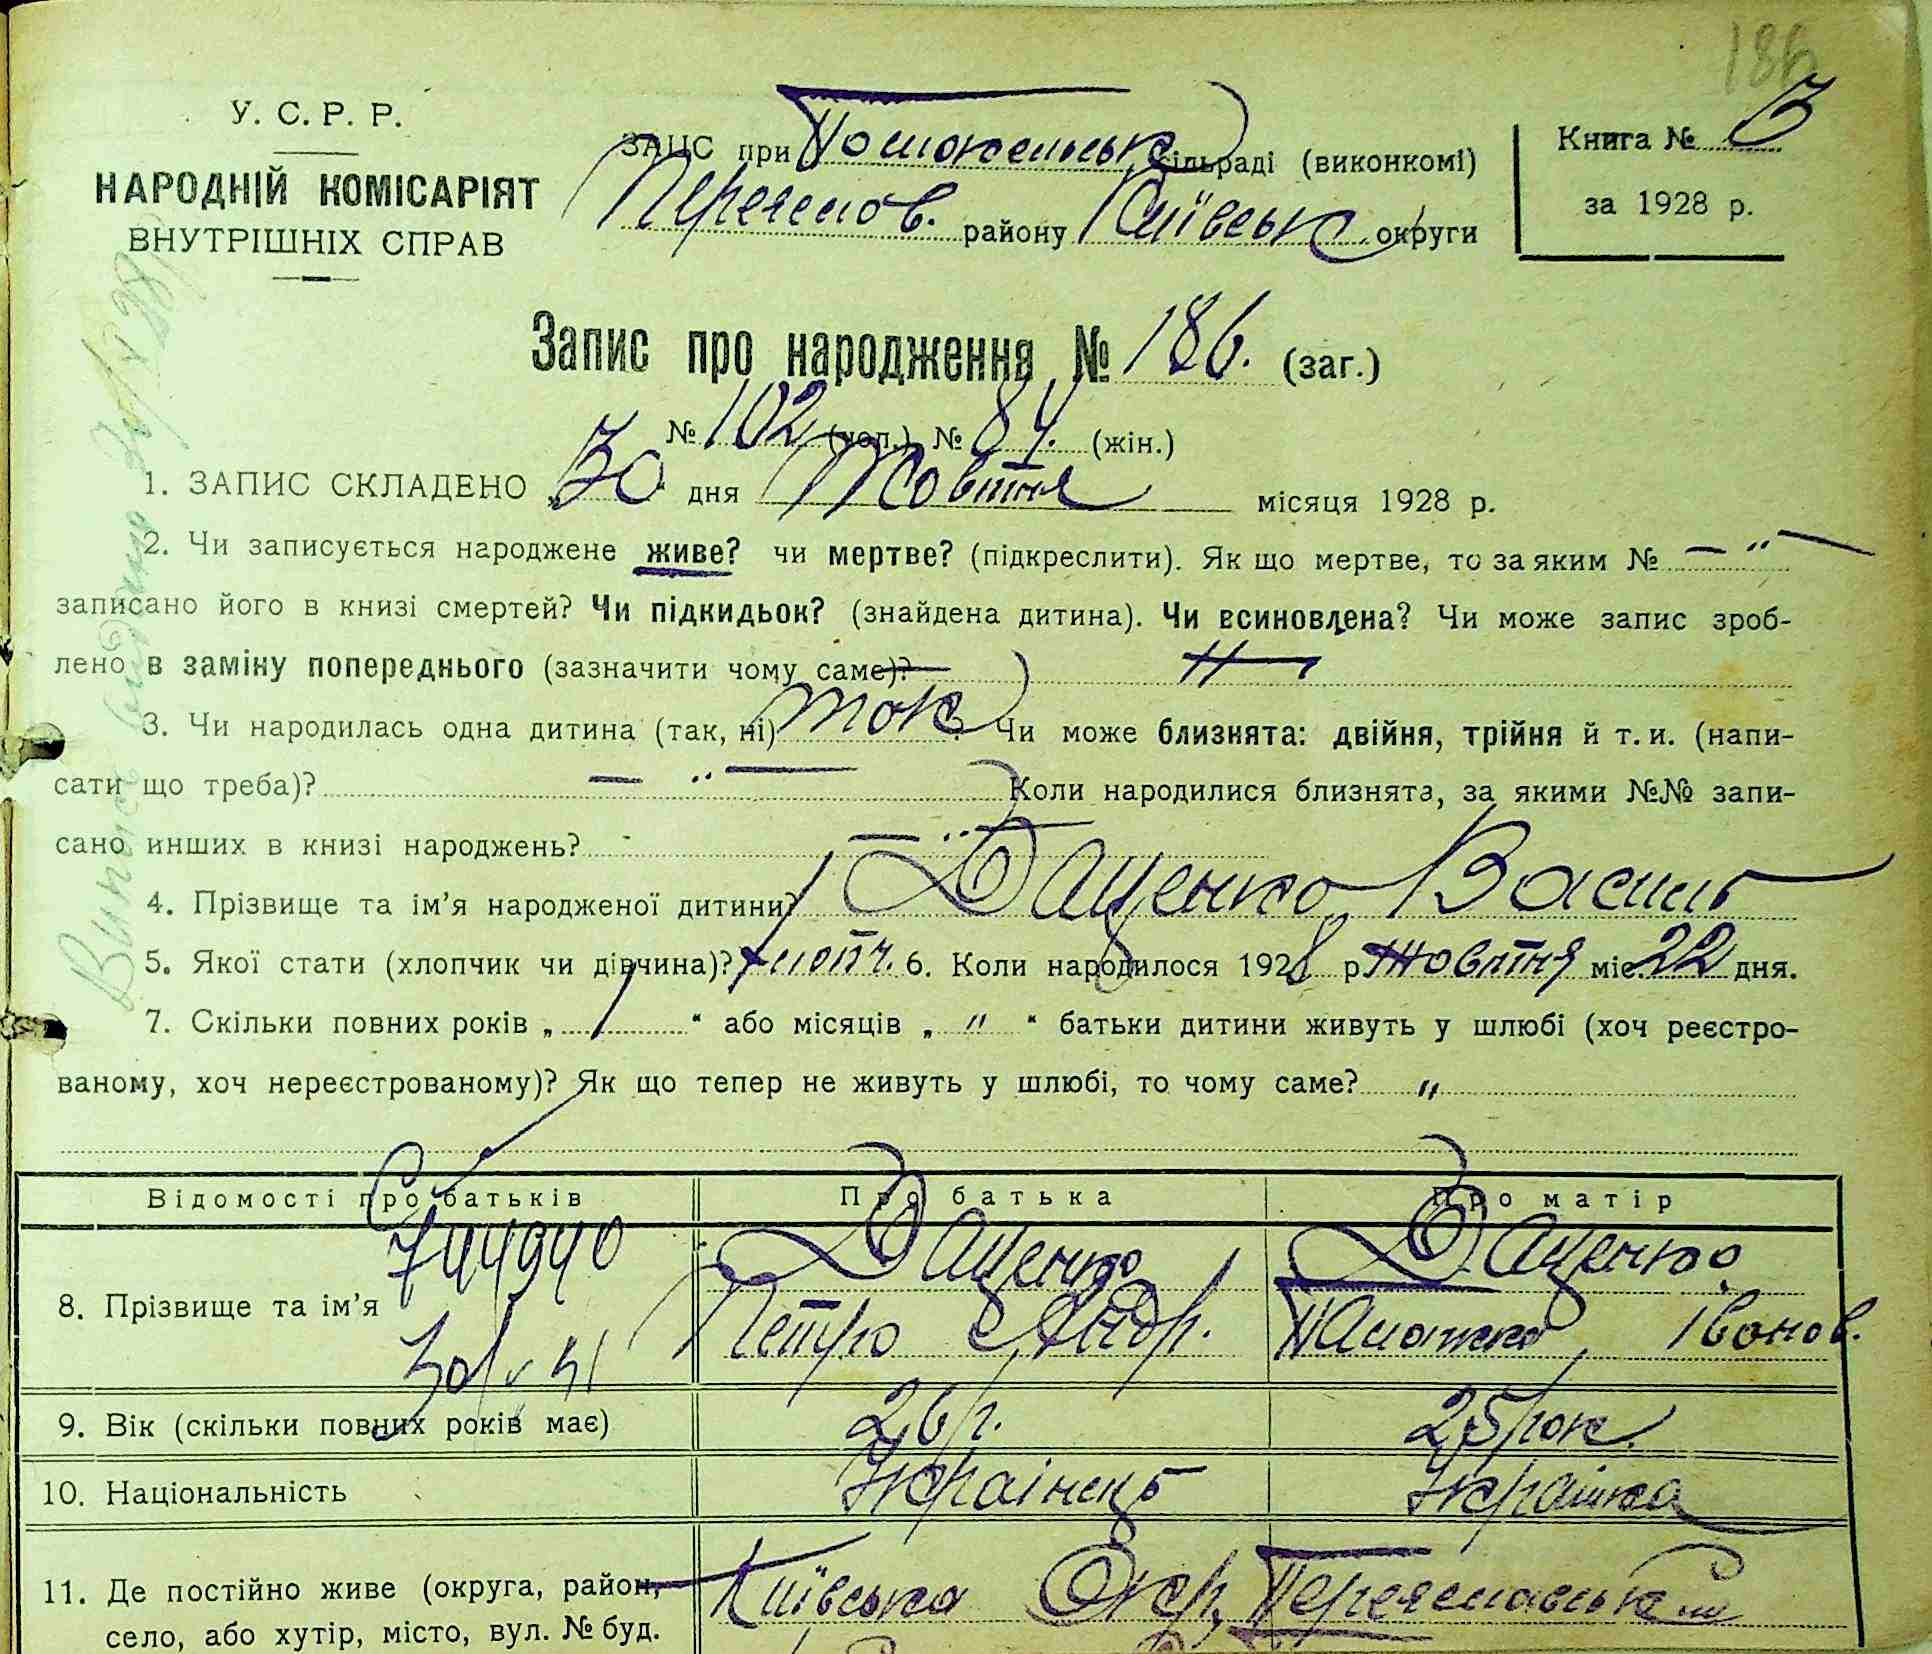 186
У. С. Р. Р.
НАРОДНІЙ КОМІСАРІЯТ
ВНУТРІШНІХ СПРАВ
ЗАПС при сільраді (виконкомі)
Переяслов. району Київськ округи
Книга № 3
за 1928 р.
Запис про народження № 186. (заг.)
№ 102 (чол.) № 84. (жін.)
1. ЗАПИС СКЛАДЕНО „30“ дня Жовтня місяця 1928 р.
2. Чи записується народжене живе? чи мертве? (підкреслити). Як що мертве, то за яким № — " —
записано його в книзі смертей? Чи підкидьок? (знайдена дитина). Чи всиновлена? Чи може запис зроб-
лено в заміну попереднього (зазначити чому саме)? — " —
3. Чи народилась одна дитина (так, ні) так? Чи може близнята: двійня, трійня й т. и. (напи-
сати що треба)? — " — Коли народилися близнята, за якими №№ запи-
сано инших в книзі народжень? — " —
4. Прізвище та ім'я народженої дитини? Даценко Василь
5. Якої стати (хлопчик чи дівчина)? хлопч. 6. Коли народилося 1928 р. Жовтня міс. 22 дня.
7. Скільки повних років „ 1 “ або місяців „ " “ батьки дитини живуть у шлюбі (хоч реєстро-
ваному, хоч нереєстрованому)? Як що тепер не живуть у шлюбі, то чому саме? "
Відомості про батьків Про батька Про матір
744940
8. Прізвище та ім'я Даценко Петро Андр. Даценко Палажка Іванов.
9. Вік (скільки повних років має) 26 р. 25 рок.
10. Національність Українець Українка
11. Де постійно живе (округа, район, Київська Окр, Переяславськ
село, або хутір, місто, вул. № буд.